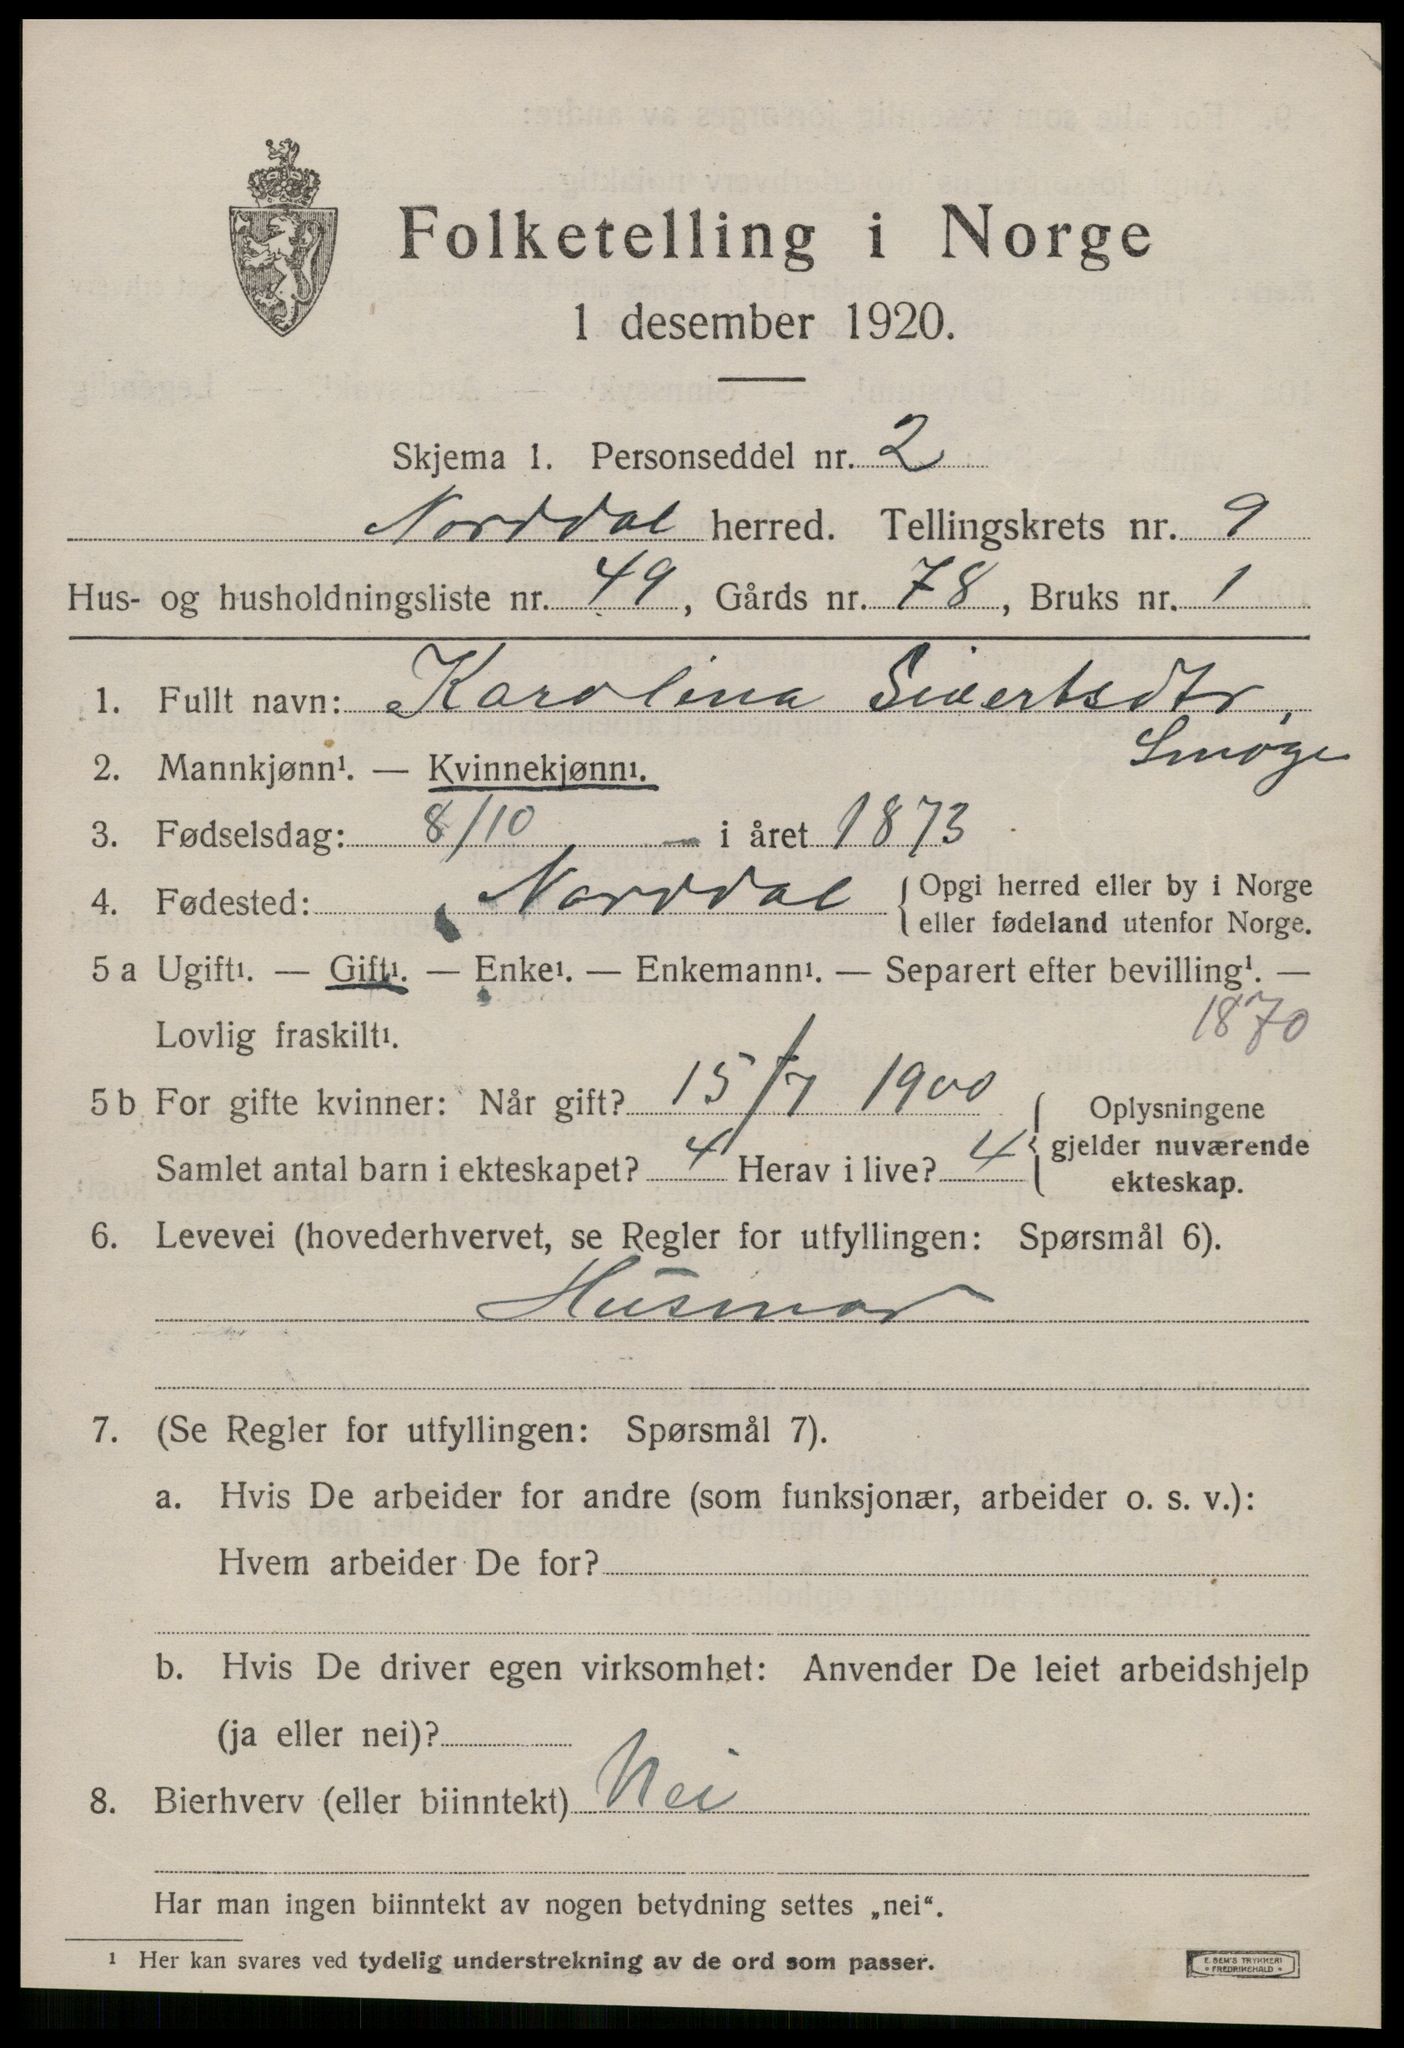 Folketelling i Norge
1 desember 1920.
Skjema 1. Personseddel nr. 2
Norddal herred. Tellingskrets nr. 9
Hus- og husholdningsliste nr. 49, Gårds nr. 78, Bruks nr. 1
1. Fullt navn: Karolina Sivertsdtr,
Smoge
2. Mannkjønn¹. — Kvinnekjønn¹.
3. Fødselsdag: 8/10 — i året 1873
4. Fødested: Norddal { Opgi herred eller by i Norge
eller fødeland utenfor Norge.
5 a Ugift¹. — Gift¹. — Enke¹. — Enkemann¹. — Separert efter bevilling¹. —
Lovlig fraskilt¹. 1870
5 b For gifte kvinner: Når gift? 15/7 1900 { Oplysningene
gjelder nuværende
Samlet antal barn i ekteskapet? 4 Herav i live? 4
ekteskap.
6. Levevei (hovederhvervet, se Regler for utfyllingen: Spørsmål 6).
Husmor
7. (Se Regler for utfyllingen: Spørsmål 7).
a. Hvis De arbeider for andre (som funksjonær, arbeider o. s. v.):
Hvem arbeider De for?
b. Hvis De driver egen virksomhet: Anvender De leiet arbeidshjelp
(ja eller nei)?
8. Bierhverv (eller biinntekt) Nei
Har man ingen biinntekt av nogen betydning settes „nei“.
¹ Her kan svares ved tydelig understrekning av de ord som passer.
E. SEM'S TRYKKERI
FREDRIKSHALD